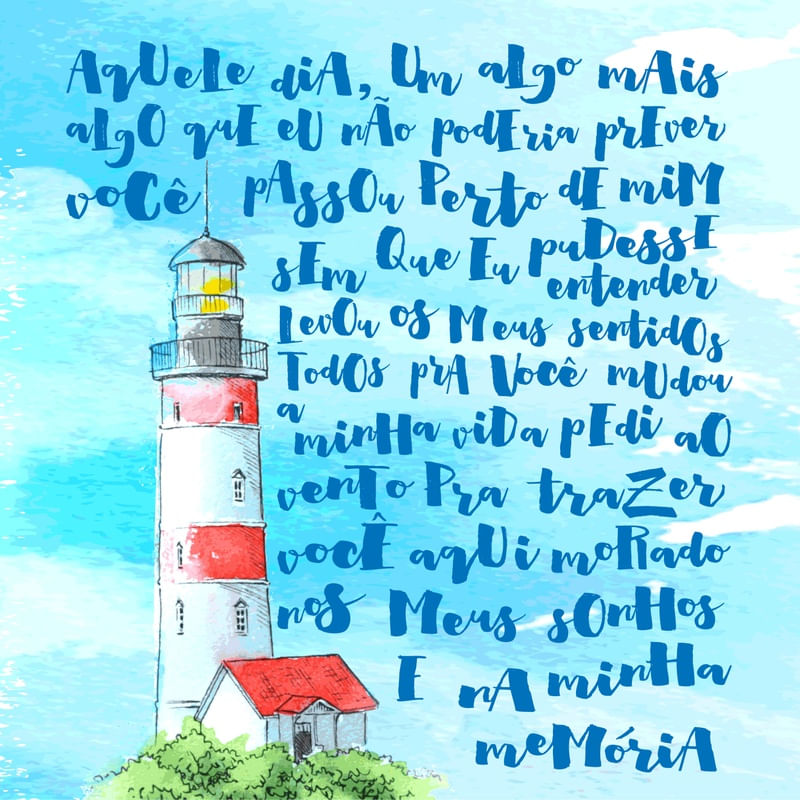 AqUeLe diA, Um aLgo mAis
aLgO quE eU nÃo podEria prEver
voCê pAssOu Perto dE miM
sEm Que Eu puDessE
entender
LevOu os Meus sentidOs
TodOs prA VoCê mUdou
a
minHa viDa pEdi aO
venTo Pra traZer
vocÊ aqUi moRado
nos Meus sOnHos
E nA minHa
meMóriA